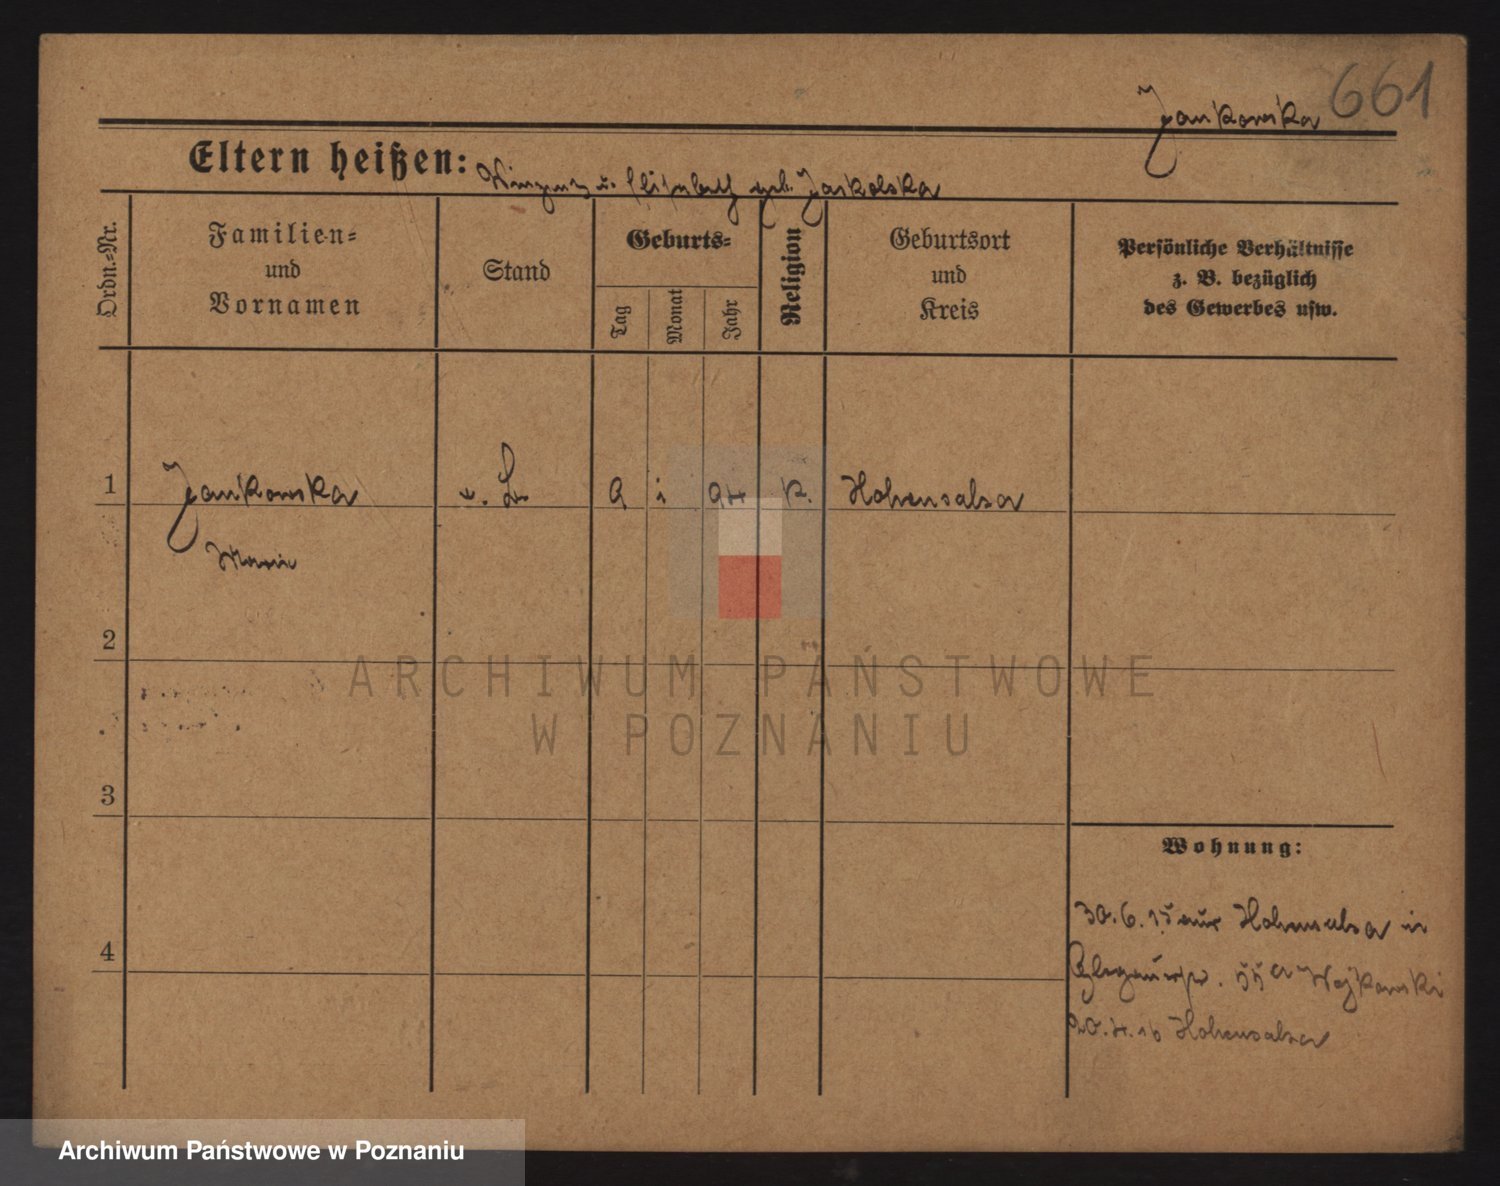 661
Jankowska
Eltern heißen: Winzenz u. Elisabeth geb. Jaskolska
Ordn.-Nr.
Familien-
und
Vornamen
Stand
Geburts-
Tag
Monat
Jahr
Religion
Geburtsort
und
Kreis
Persönliche Verhältnisse
z. B. bezüglich
des Gewerbes usw.
1 Jankowska 9 1 94 K. Hohensalza
Marie
2
ARCHIWUM PAŃSTWOWE
W POZNANIU
3
Wohnung:
30.6.15 aus Hohensalza in
55a Wojkowski
20.4.16 Hohensalza
4
Archiwum Państwowe w Poznaniu